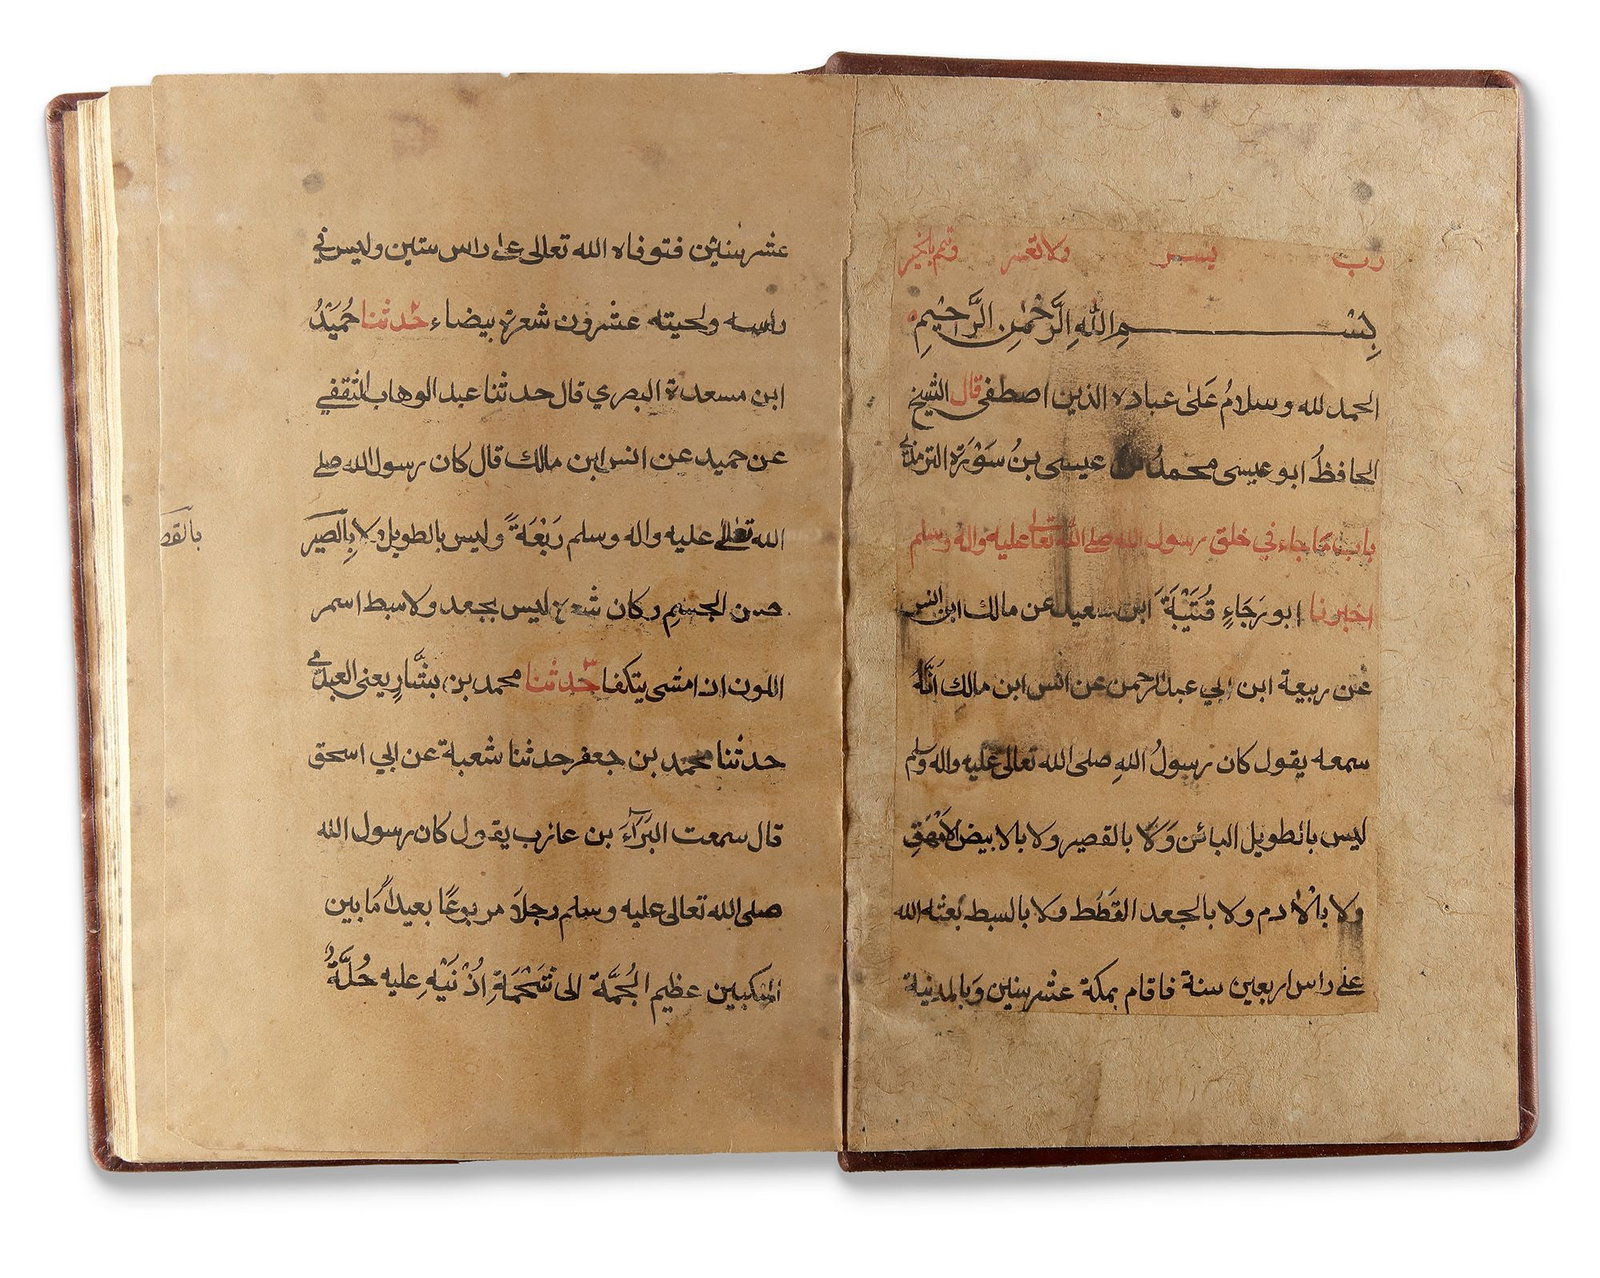 رب يسر ولا تعسر وتمم بالخير
بِسْمِ اللّٰهِ الرَّحْمٰنِ الرَّحِيْمِ
الحمد لله وسلامُ عَلٰى عباده الذين اصطفى قال الشيخ
الحافظُ ابو عيسى محمدُ بن عيسى بنُ سَوْرَة الترمذي
باب مَا جاء في خلق رسول الله صلى الله تعالى عليه واله وسلم
اخبرنا ابو رَجَاءٍ قُتَيْبَةُ ابن سعيد عن مالك ابن انس
عن ربيعة ابن ابي عبد الرحمن عن انس ابن مالكِ انَّهُ
سمعه يقول كان رسولُ اللهِ صلى الله تعالى عليه واله وسلم
ليس بالطويل البائن وَلَا بالقصير ولا بالابيض الاَمْهَقِ
ولا بالاٰدم ولا بالجعد القَطَط ولا بالسبط بَعثه الله
على راس اربعين سنة فاقام بمكة عشر سنين وَبالمدينة
عشر سنين فتوفاه الله تعالى على راس ستين وليس في
راسه ولحيته عشرون شعرة بيضاء ٢ حدثنا حُمَيْدُ
ابن مسعدة البصري قال حدثنا عبد الوهاب الثقفي
عن حميد عن انس ابن مالك قال كان رسول الله صلى
الله تعالى عليه واله وسلم رَبْعَةً وليس بالطويل ولا بالقصير
حسن الجسم وكان شعره ليس بجعد ولا سبط اسمر
اللون اذا مشى يتكفا ٣ حدثنا محمد بن بشَّارٍ يعنى العبدي
حدثنا محمد بن جعفر حدثنا شعبة عن ابي اسحق
قال سمعت البَرَآءَ بن عازب يقول كان رسول الله
صلى الله تعالى عليه وسلم رجلاً مربوعًا بعيد مَا بين
المنكبين عظيم الجُمَّة الى شَحْمَةِ اُذْنَيْهِ عليه حُلَّةٌ